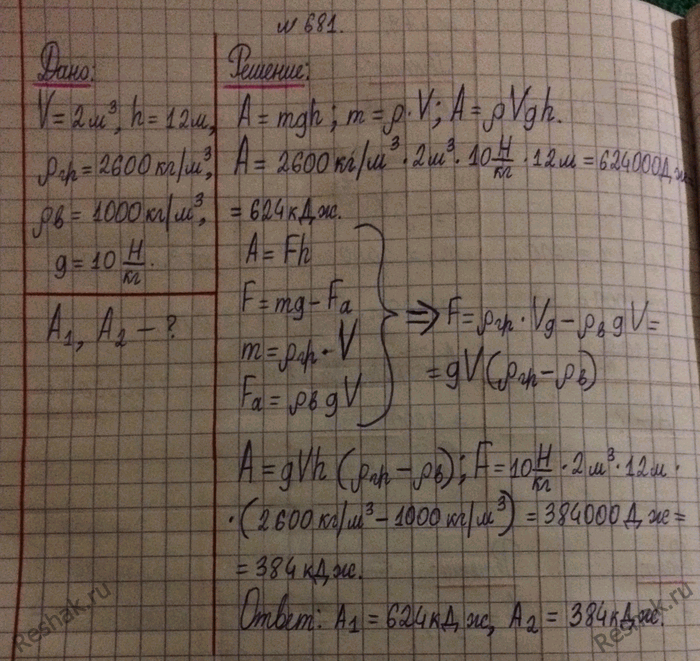 № 681.
Дано:
V = 2 м³, h = 12 м,
ρгр = 2600 кг/м³,
ρв = 1000 кг/м³,
g = 10 Н/кг.
A₁, A₂ – ?
Решение:
A = mgh; m = ρ·V; A = ρVgh.
A = 2600 кг/м³ · 2 м³ · 10 Н/кг · 12 м = 624000 Дж
= 624 кДж.
A = Fh
F = mg – Fa
m = ρгр · V
Fa = ρв gV
⇒ F = ρгр · Vg – ρв gV =
= gV(ρгр – ρв)
A = gVh (ρгр – ρв); F = 10 Н/кг · 2 м³ · 12 м ·
· (2600 кг/м³ – 1000 кг/м³) = 384000 Дж =
= 384 кДж.
Ответ: A₁ = 624 кДж, A₂ = 384 кДж.
Reshak.ru
Reshak.ru